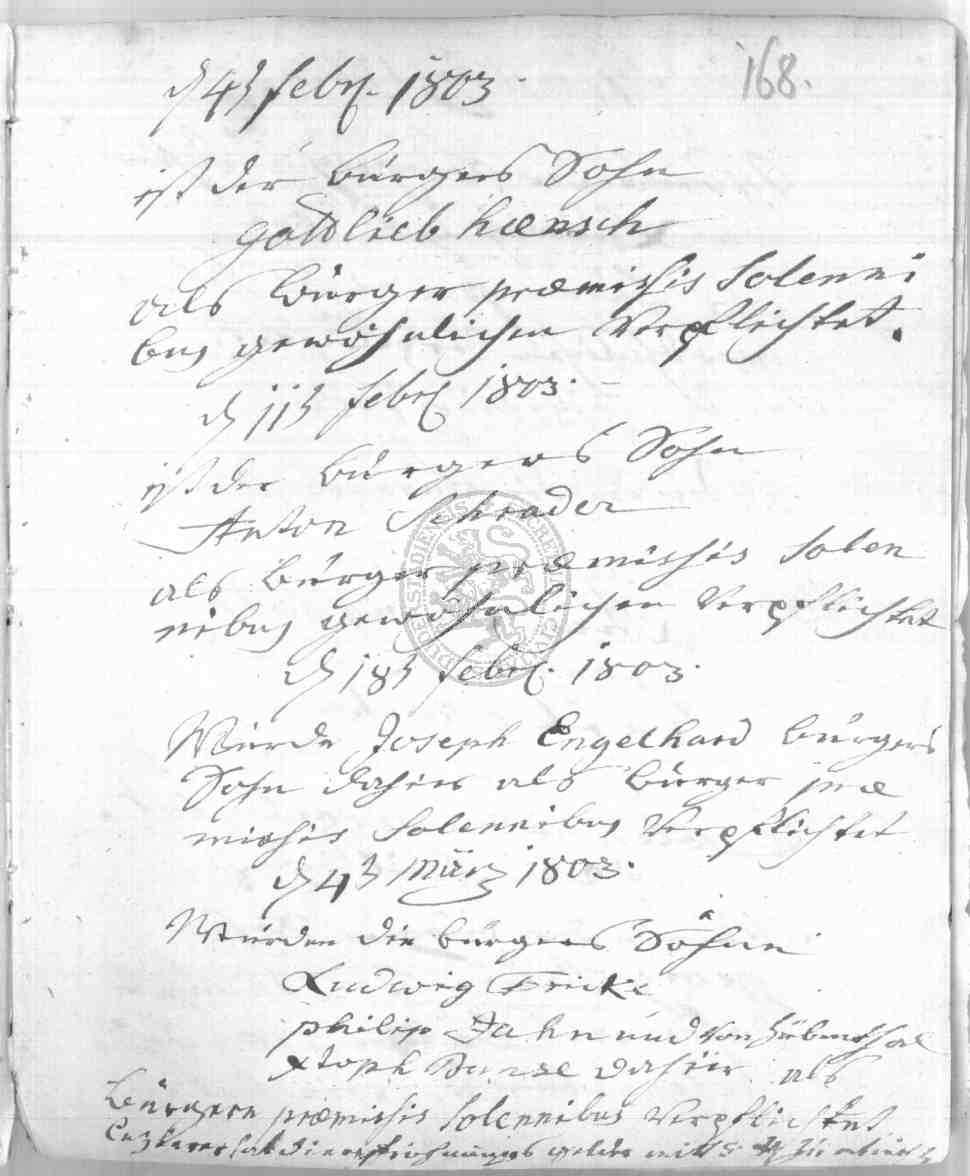 168.
d 4t Febr. 1803.
ist der Bürgers Sohn
Gottlieb Haensch
als Bürger praemissis Solenni
bus gewöhnlichen Verpflichtet.
d 11t Febr. 1803.
ist der Bürgers Sohn
Anton Schrader
als Bürger praemissis Solen
nibus gewöhnlichen Verpflichtet
d 18t Febr. 1803.
Wurde Joseph Engelhard Bürgers
Sohn dahier als Bürger prae
missis Solennibus Verpflichtet
d 4t März 1803.
Wurden die Bürgers Söhne
Ludwig Fricke
philip Jahn und von
Xtoph dahier als
Bürgern praemissis Solennibus Verpflichtet
hat die gelder mit 5